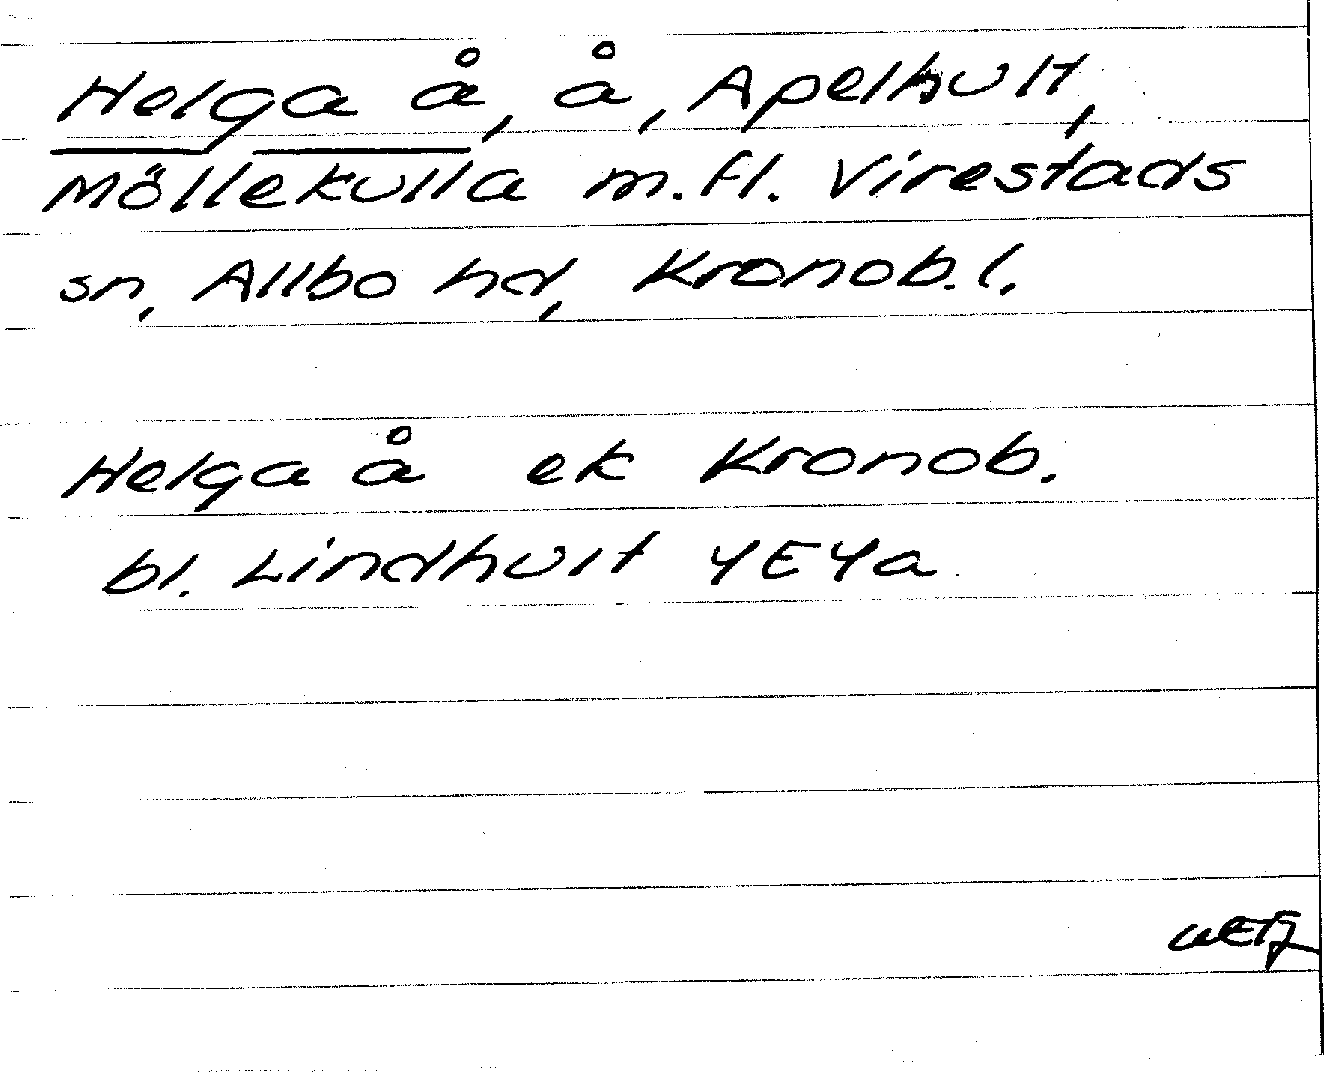 Helga å, å, Apelhult,
Möllekulla m.fl. Virestads
sn, Allbo hd, Kronob.l.
Helga å ek Kronob.
bl. Lindhult 4E4a